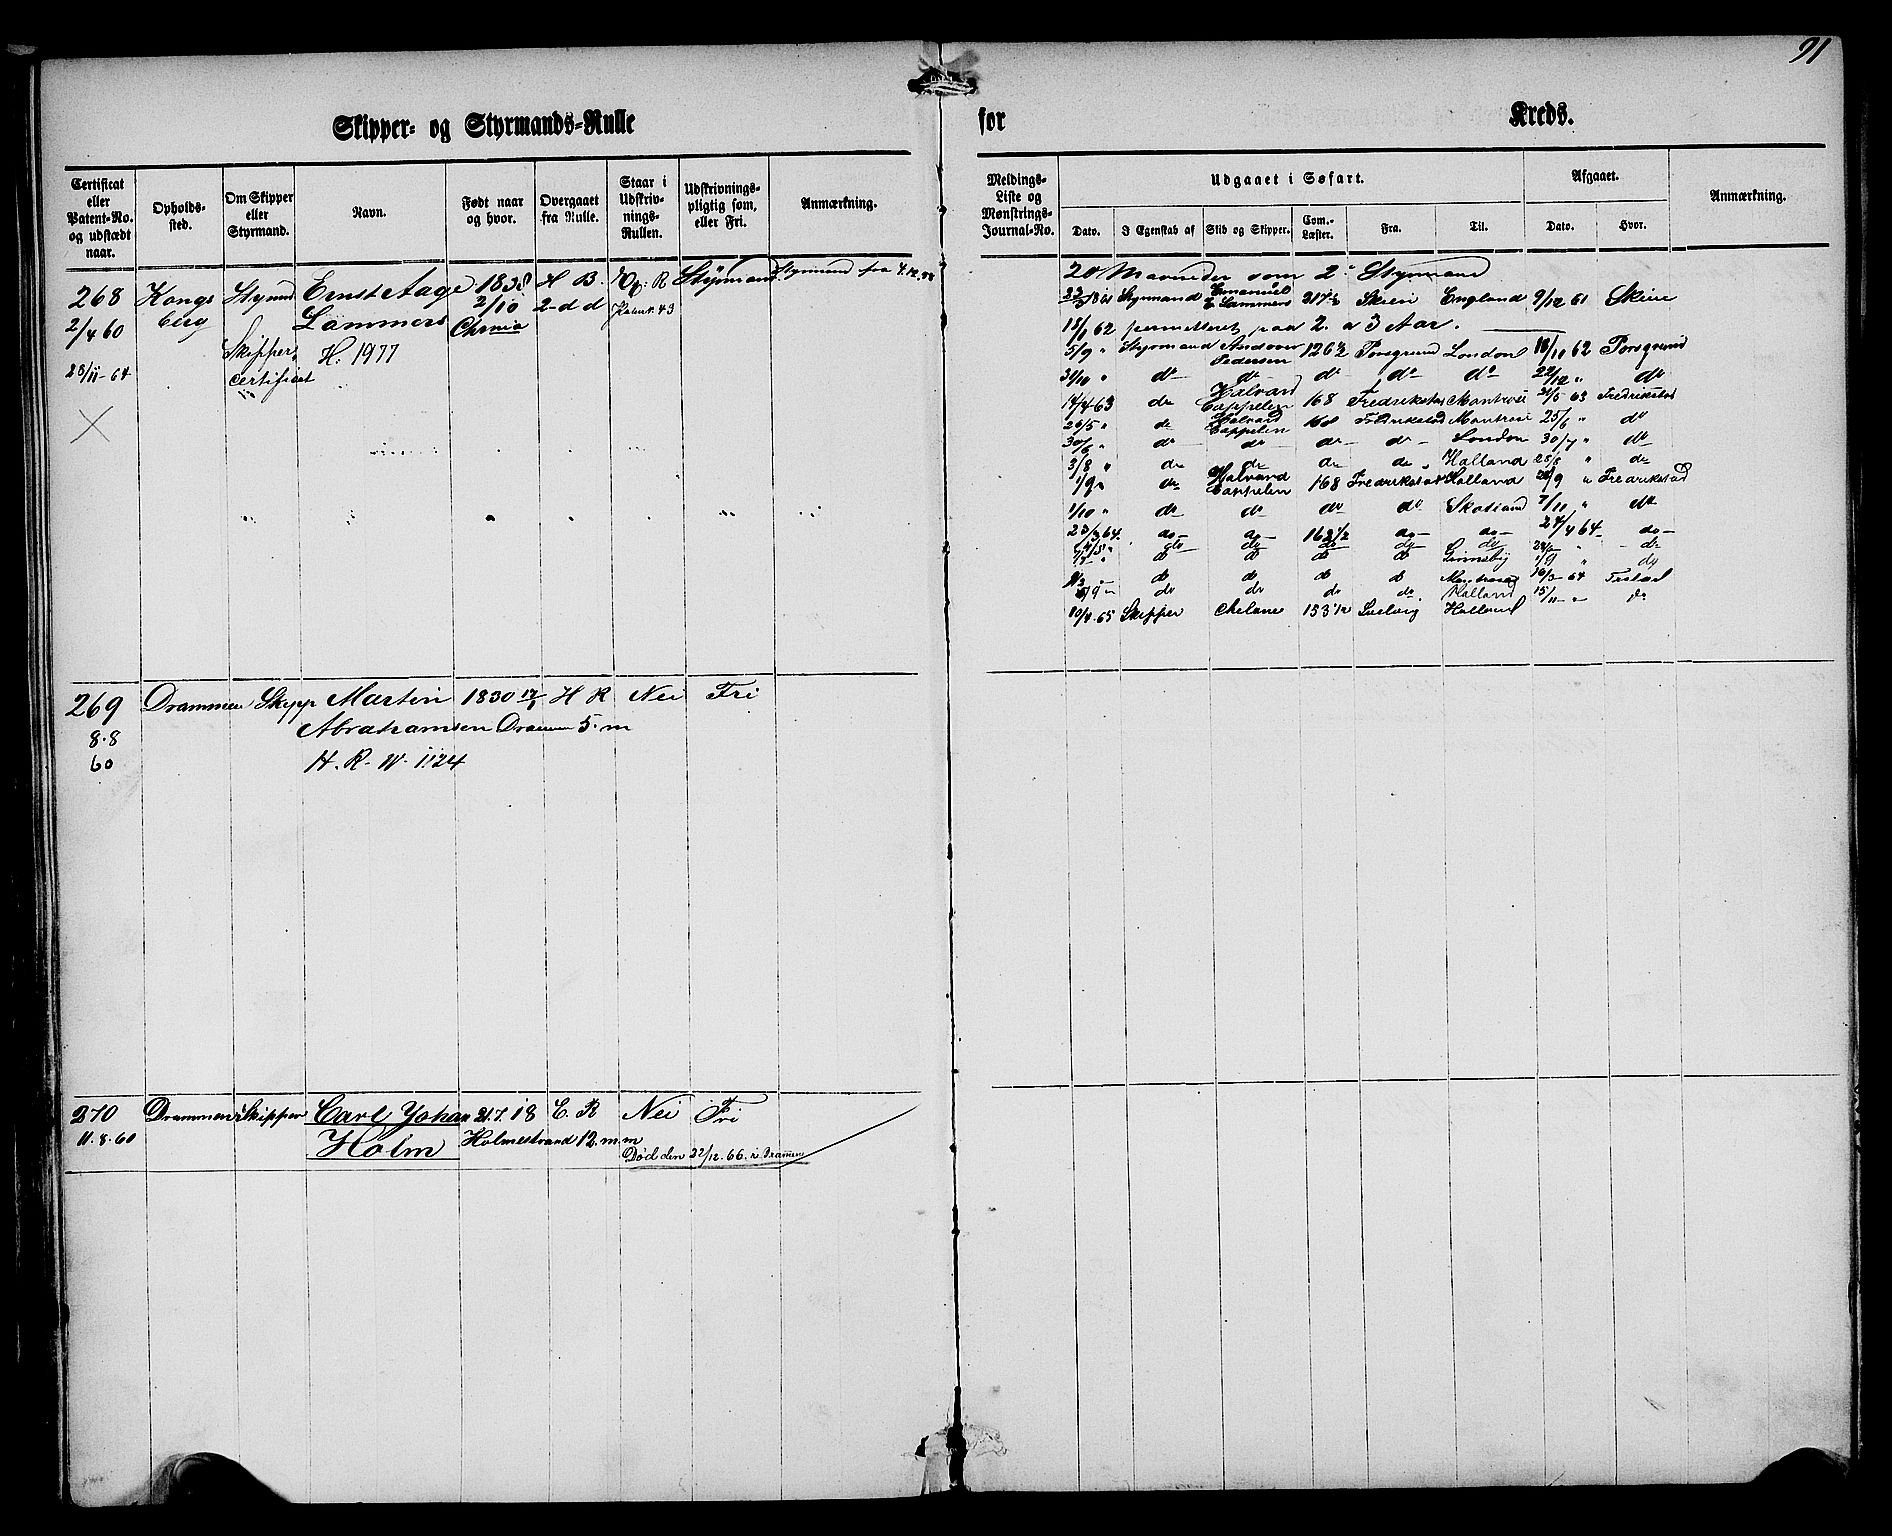 91
Skipper- og Styrmands-Rulle
for Kreds.
Certificat eller Patent-No. og udstædt naar.
Opholds-sted.
Om Skipper eller Styrmand.
Navn.
Født naar og hvor.
Overgaaet fra Rulle.
Staar i Udskriv-nings-Rullen.
Udskrivnings-pligtig som, eller Fri.
Anmærkning.
Meldings-Liste og Mønstrings-Journal-No.
Udgaaet i Søfart.
Afgaaet.
Anmærkning.
Dato. I Egenskab af Skib og Skipper. Com.-Læster. Fra. Til. Dato. Hvor.
268 Kongs Styrmd Ernst Aage 1838 H B. R Styrmand Styrmand fra
2/4 60 berg Lammers 2/10 2-d d
Chrnia
Skipper H: 1977
28/11-64 certificat
20 Maaneder som 2den Styrmand
Styrmand Emanuel Lammers Skien England 9/12 61 Skien
18/1 62 permitteret paa 2 a 3 Aar.
5/9 " Styrmand Andover Pedersen 126 1/2 Porsgrund London 18/10 62 Porsgrund
31/10 " do do do do do 22/12 " do
14/4 63 do Halvard Cappelen 168 Fredrikstad Montrose 21/5 63 Fredrikstad
26/5 " do Halvard Cappelen 168 Fredrikstad Montrose 25/6 " do
30/6 " do do do do London 30/7 " do
3/8 " do do do do Holland 28/8 " do
1/9 " do Halvard Cappelen 168 Fredrikstad Holland 26/9 " Fredrikstad
1/10 " do do do do Skotland 7/11 " do
23/3 64 do do 162 1/2 do do 24/4 64 do
do do do do do " do
do do do do Grimsby 1/9 " do
do do do do 64
9 " do do do do Holland 15/11 " do
10/4 65 Skipper 153 1/2 Svelvig Holland
269 Drammen Skipp Martin 1830 H R Nei Fri
8.8 Abrahamsen Drammen 5. m
60 H. R. N. 1124
270 Drammen Skipper Carl Johan 21.7.18 E. R Nei Fri
11.8.60 Holm Holmestrand 12. m. m
Død den 22/12. 66. i Drammen